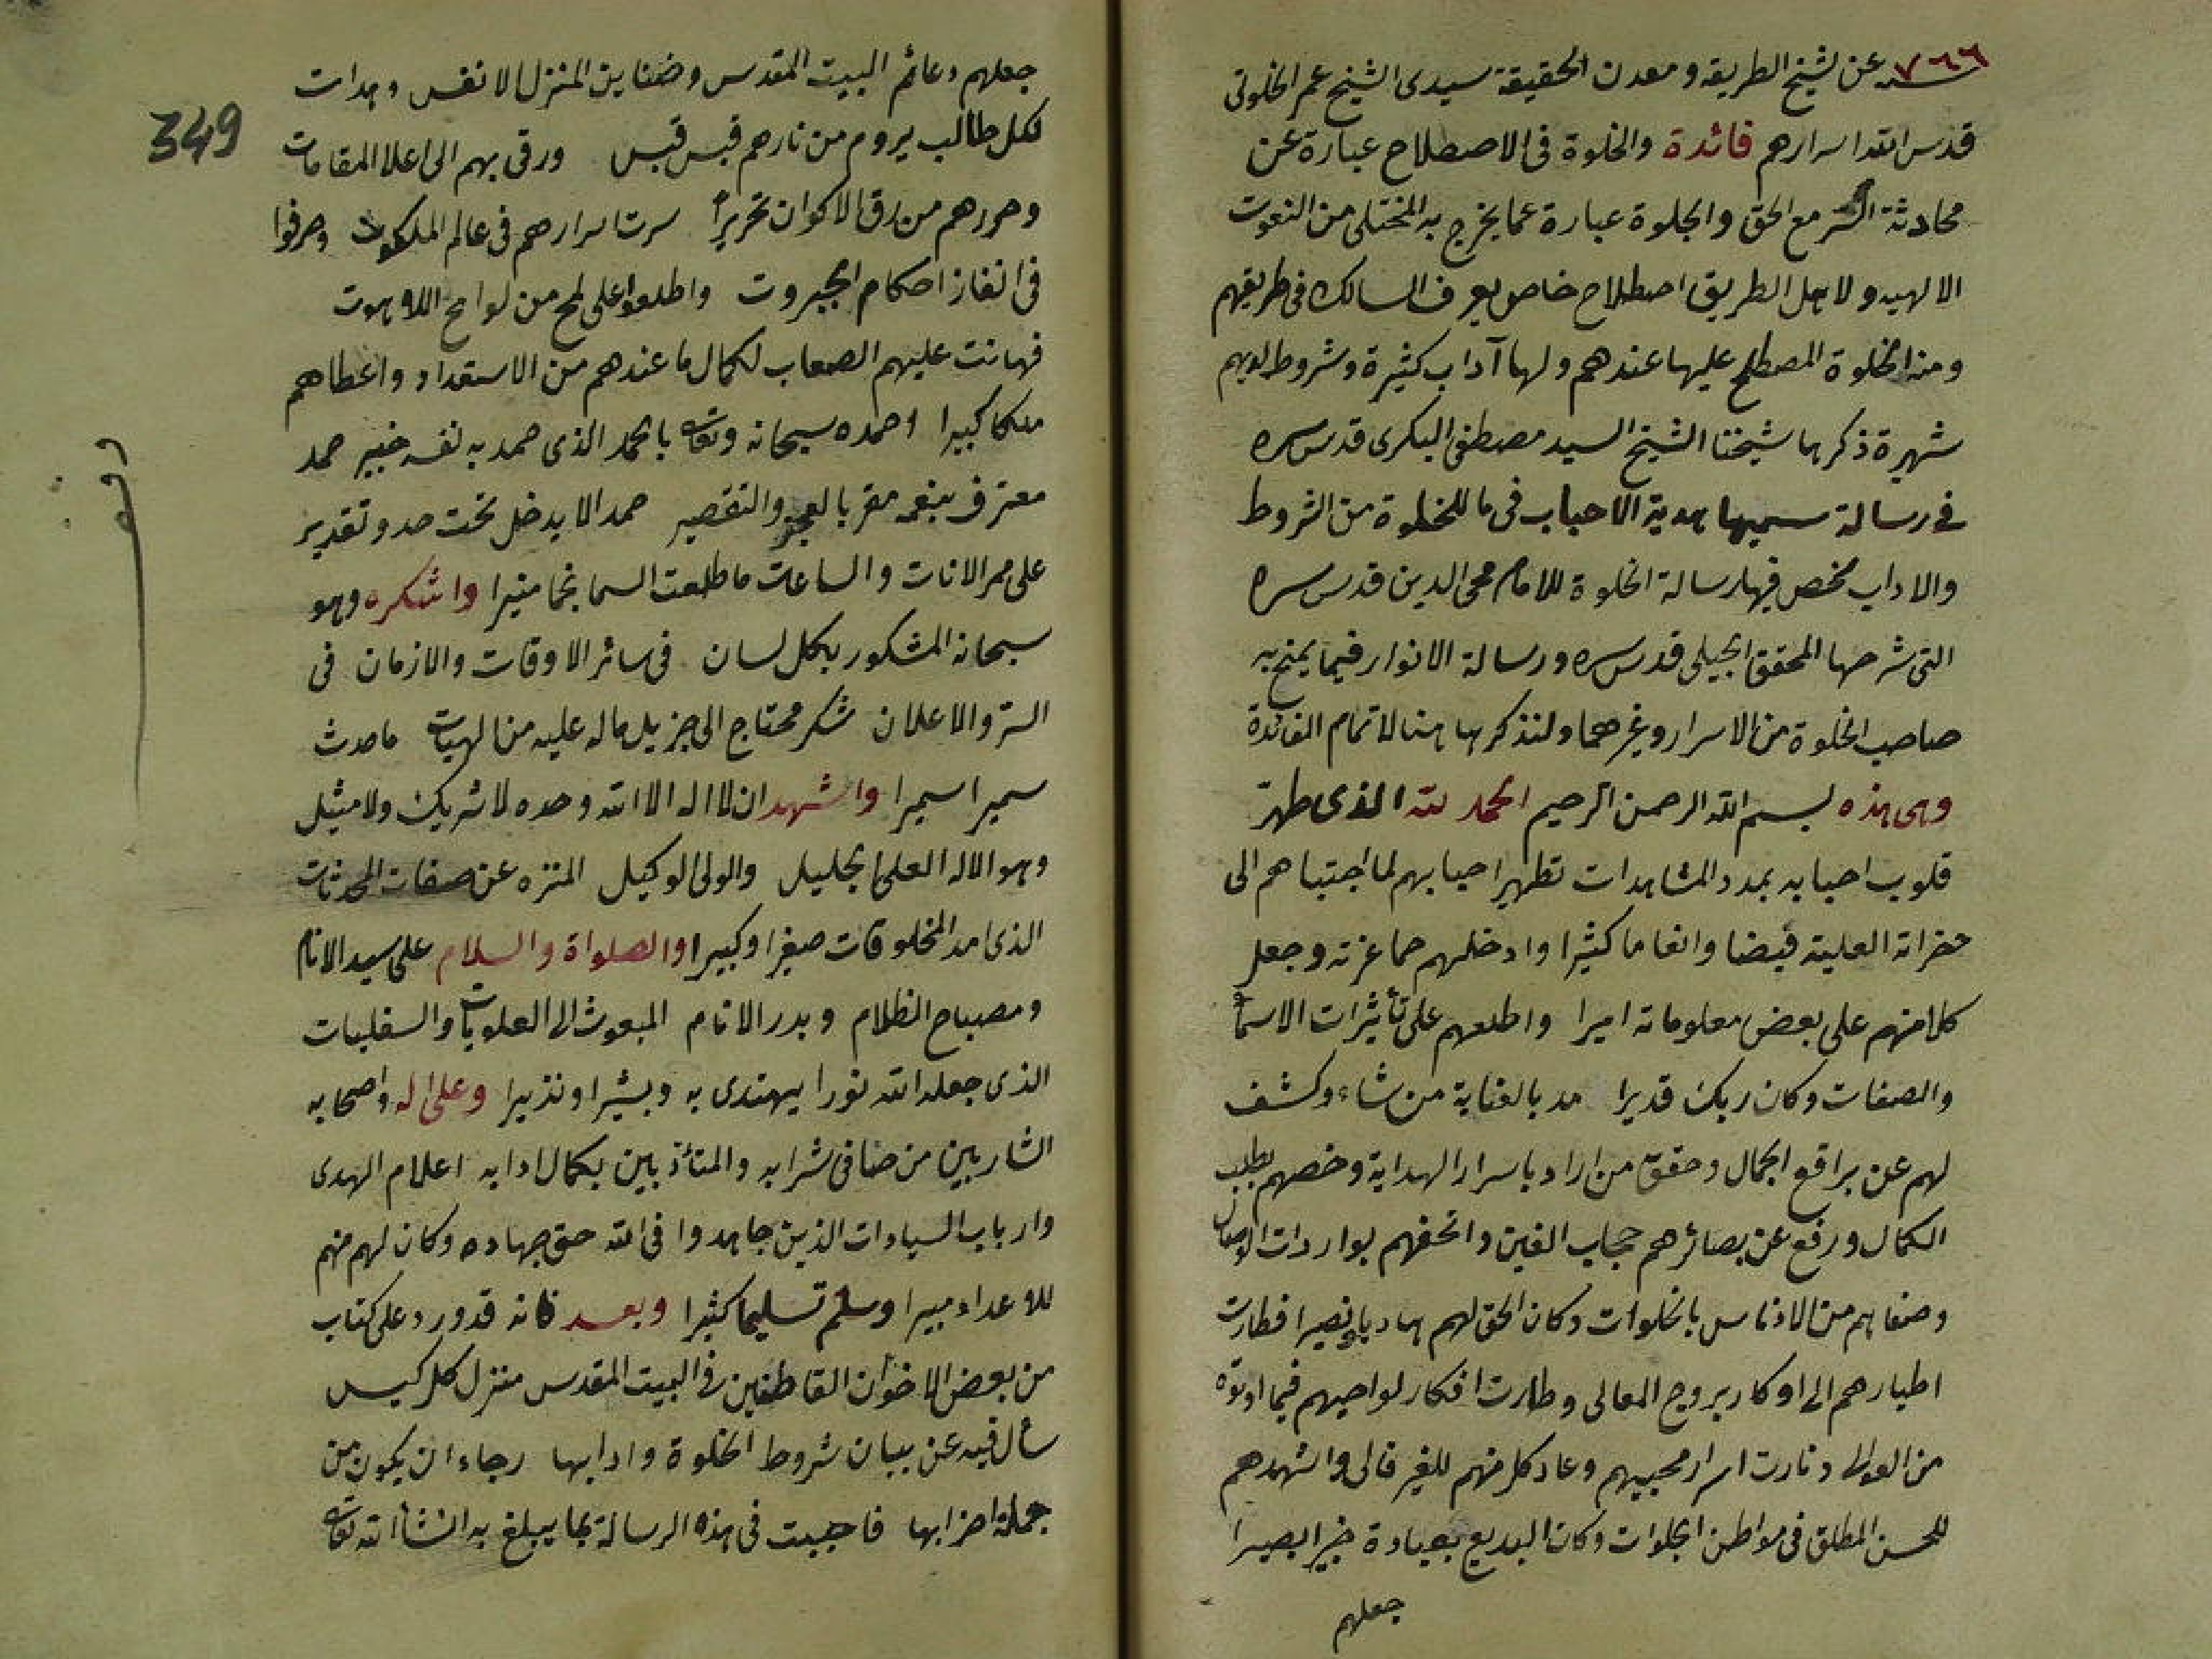 ٧٦٦
عن شيخ الطريقه ومعدن الحقيقة سيدى الشيخ عمر الخلوتى
قدس الله اسرارهم فائدة والخلوة فى الاصطلاح عبارة عن
محادثة السر مع الحق والجلوة عبارة عما يخرج به المختلى من النعوت
الالهيه ولاهل الطريق اصطلاح خاص يعرف السالك فى طريقهم
ومنه الخلوة المصطلح عليها عندهم ولها آداب كثيرة وشروط لديهم
شهيرة ذكرها شيخنا الشيخ السيد مصطفى البكرى قدس سره
فى رسالة سميها هدية الاحباب فى ما للخلوة من الشروط
والاداب لخص فيها رسالة الخلوة للامام محى الدين قدس سره
التى شرحها المحقق الجيلى قدس سره ورسالة الانوار فيما يمنح به
صاحب الخلوة من الاسرار وغيرهما ولنذكرها هنا لاتمام الفائدة
وهى هذه بسم الله الرحمن الرحيم الحمد لله الذى طهر
قلوب احبابه بمدد المشاهدات تطهيرا حبابهم لما اجتباهم الى
حضراته العلية فيضا وانعاما كثيرا وادخلهم حما عزته وجعل
كلا منهم على بعض معلوماته اميرا واطلعهم على تأثيرات الاسما
والصفات وكان ربك قديرا مد بالعناية من شاء وكشف
لهم عن براقع الجمال وحقق من اراد باسرار الهداية وخصهم بطلب
الكمال ورفع عن بصائرهم حجاب الغين واتحفهم بواردات
وصفاهم من الادناس بالخلوات وكان الحق لهم هاديا ونصيرا فطارت
اطيارهم الى اوكار بروج المعالى وطارت افكار لواحيهم فيما اوتوه
من العوالى ونارت اسرار محبيهم وعاد كل منهم للغير قالى واشهدهم
للحسن المطلق فى مواطن الجلوات وكان البديع بعبادة خبيرا بصيرا
جعلهم
349
جعلهم دعائم البيت المقدس وضنا ين المنزل الانفس وهدات
لكل طالب يروم من نارهم قبس قبس ورقى بهم الى اعلا المقامات
وحررهم من رق الاكوان تحريرا سرت اسرارهم فى عالم الملكوت وصرفوا
فى انفاز احكام الجبروت واطلعوا على لمح من لوامح اللاهوت
فهانت عليهم الصعاب لكمال ما عندهم من الاستعداد واعطاهم
ملكا كبيرا احمده سبحانه وتعالى بالحمد الذى حمد به نفسه خبير حمد
معترف بنعمه مقر بالعجز والتقصير حمدا لا يدخل تحت حد وتقدير
على ممر الانات والساعات ما طلعت السما نجما منيرا واشكره وهو
سبحانه المشكور بكل لسان فى سائر الاوقات والازمان فى
السر والاعلان شكر محتاج الى جزيل ماله عليه من الهبات ما حدث
سمير اسميرا واشهد ان لا اله الا الله وحده لا شريك ولا مثيل
وهو الاله العلى الجليل والولى الوكيل المنزه عن صفات المحدثات
الذى امد المخلوقات صغيرا وكبيرا والصلواة والسلام على سيد الانام
ومصباح الظلام وبدر الانام المبعوث الى العلويات والسفليات
الذى جعله الله نورا يهتدى به وبشيرا ونذيرا وعلى اله واصحابه
الشاربين من صافى شرابه والمتأدبين بكمال ادابه اعلام الهدى
وارباب السيادات الذين جاهدوا فى الله حق جهاده وكان لهم منهم
للاعداء مبيرا وسلم تسليما كثيرا وبعد فانه قد ورد على كتاب
من بعض الاخوان القاطنين فى البيت المقدس منزل كل كيس
سأل فيه عن بيان شروط الخلوة وادابها رجاء ان يكون من
جملة احزابها فاجبت فى هذه الرسالة بما يبلغ به انشأ الله تعالى
وقف